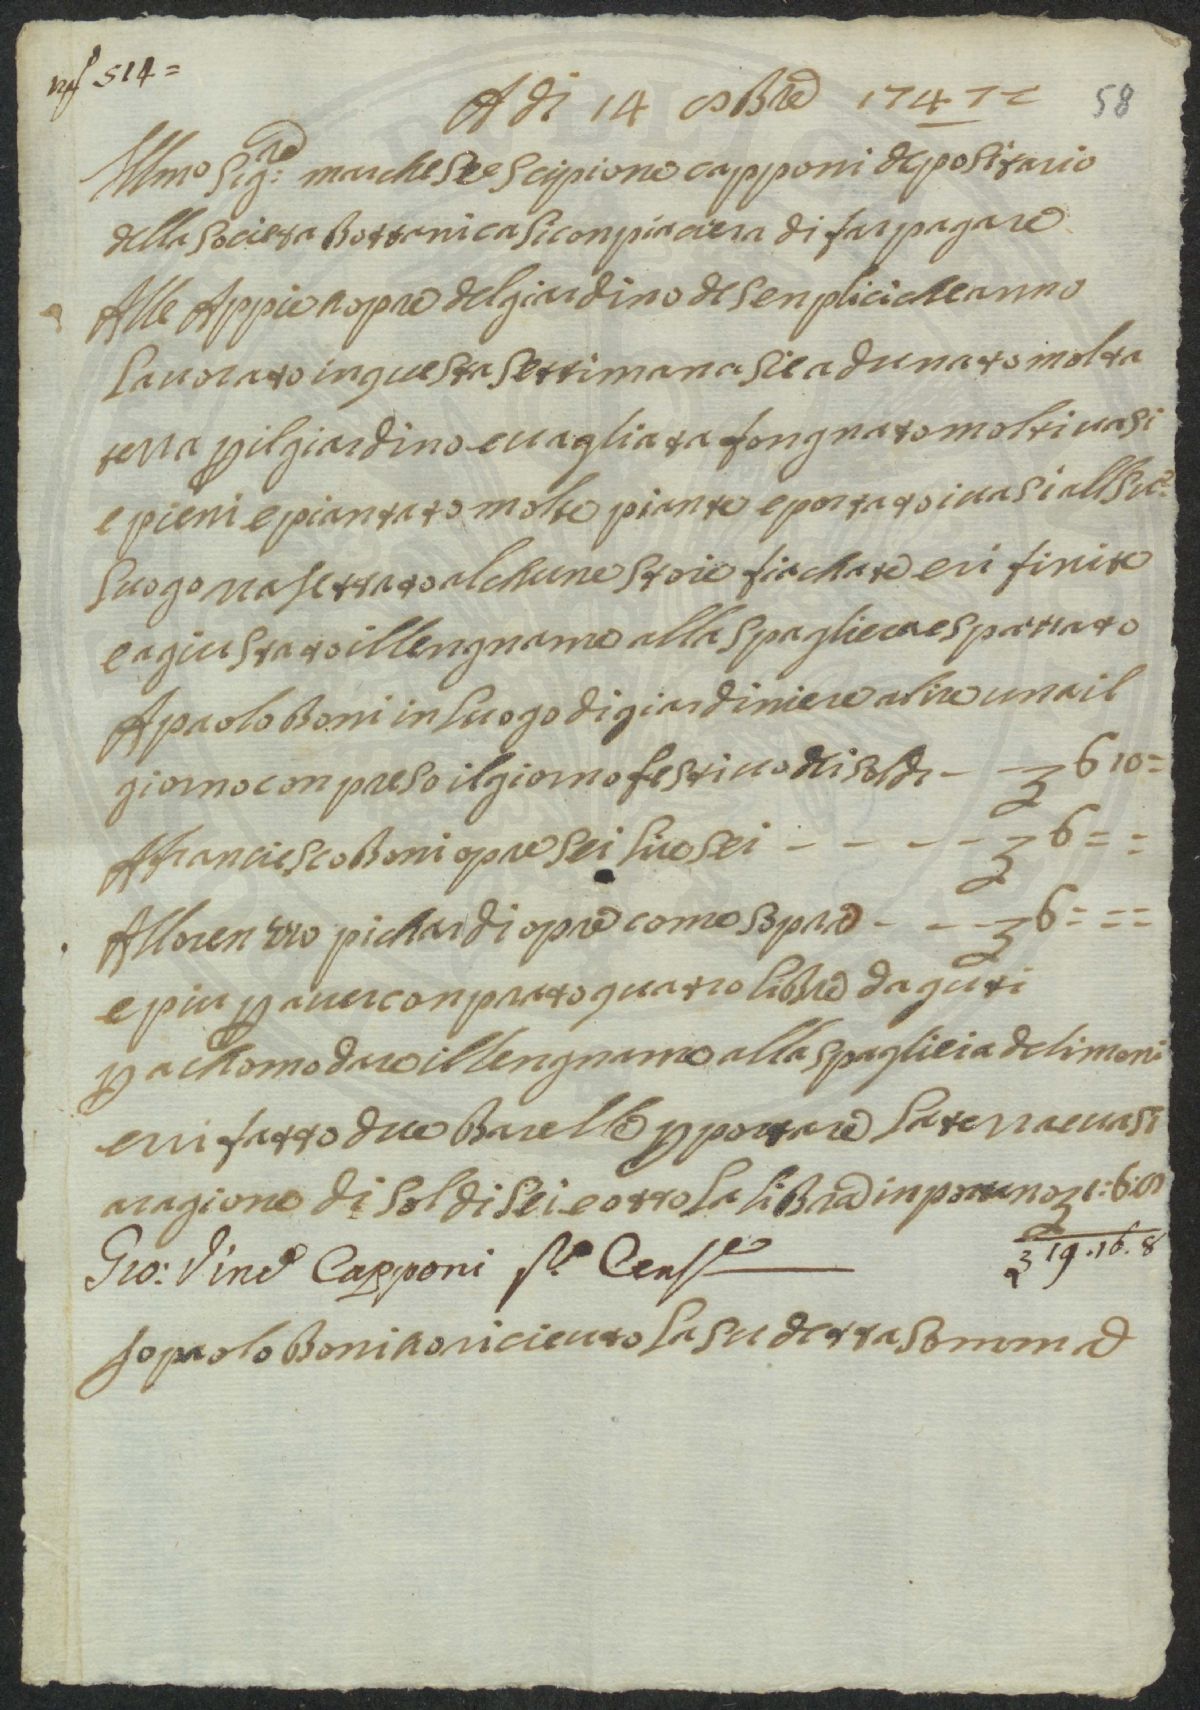 nº 514 =
A di 14 8bre 1747 = 58
Illmo Sigre: marchese Scipione capponi depositario
della Societa Bottanica Si conpiacera di far pagare
Alle Appie opre del giardino de Senplici che anno
Lauorato in questa Settimana Si e adunato molta
terra p il giardino e uagliata fongnato molti uasi
e pieni e piantato molte piante e portato i uasi all Suo
Luogo rasettato alchune Stoie fiachate eri finite
e agiustato il lengname alla Spagliera e spazzato
A paolo Boni in Luogo di giardiniere a lire una il
giorno conpreso il giorno festiuo di soldi - - £ 6 10 =
A Franciesco Boni opre Sei Lire Sei - - - - £ 6 = =
A lloren zzo pichardi opre come Sopra - - - £ 6 = = =
e piu p auer conprato quatro libre d aguti
p achomodare il lengname alla spaglieia de limoni
e ri fatto due Barelle p portare La terra e uasi
aragione di Soldi Sei e otto La liBra inportano £ 1:6:8
Gio: Vinc° Capponi Sº. Cens° £ 19.16.8
Jo paolo Boni o riceuto La Sudetta Somma